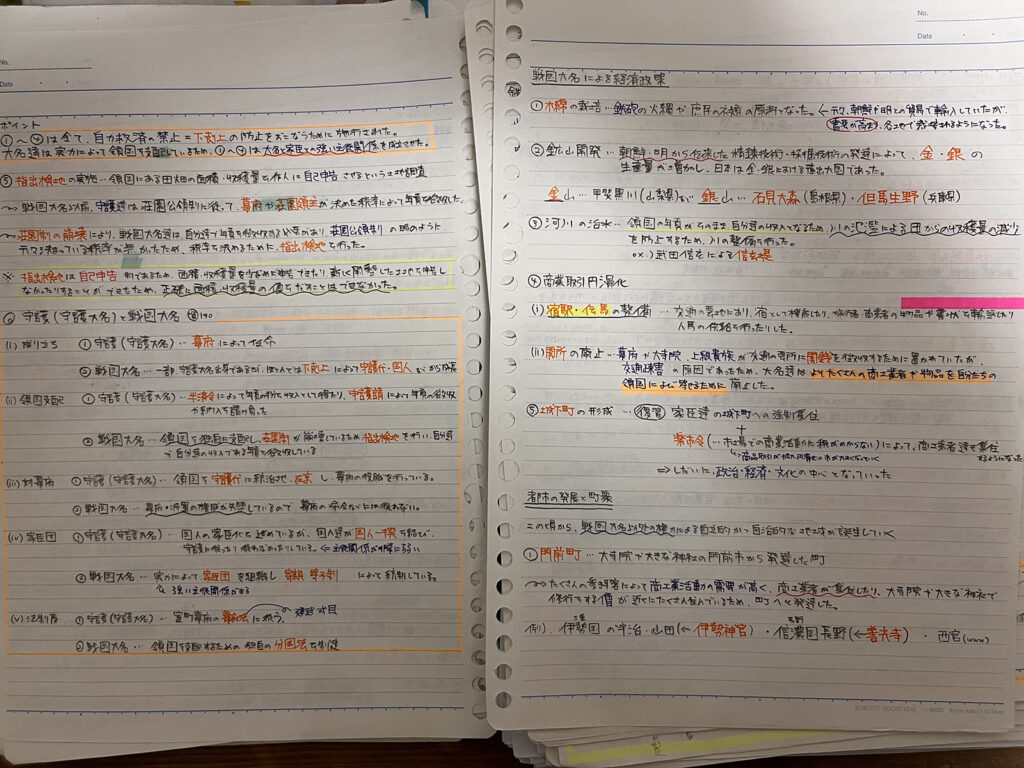 No.
Date
ポイント
①〜④は全て、自力救済の禁止=下剋上の防止をおこなうために施行された。
大名達は実力によって領国を支配しているため、①〜④は大名と家臣との強い主従関係を成立させた。
⑤ 指出検地の実施… 領国にある田畑の面積・収穫量を作人に自己申告させるという土地調査
〜戦国大名以前、守護達は荘園公領制に従って、幕府や荘園領主が決めた税率によって年貢を徴収した。
〜荘園制の崩壊により、戦国大名は自分達で年貢を徴収する必要があり、荘園公領制の時のように
元々決まっている税率が無かったため、税率を決めるために、指出検地を行った。
※ 指出検地は自己申告制であるため、面積・収穫量を少なめに申告できたり、新しく開墾したところを申告し
なかったりすることができたため、正確に面積・収穫量の値をだすことはできなかった。
⑥ 守護(守護大名)と戦国大名 P140
(i) 成り立ち ① 守護(守護大名)… 幕府によって任命
② 戦国大名… 一部守護大名出身であるが、ほとんどは下剋上によって守護代・国人などから成長
(ii) 領国支配 ① 守護(守護大名)… 半済令によって年貢の半分を収入として得たり、守護請によって年貢の徴収
や納入を請け負った
② 戦国大名… 領国を独自に支配し、荘園制が崩壊しているため指出検地を行い、自分達
で自分達の収入である年貢を徴収している
(iii) 対幕府 ① 守護(守護大名)… 領国を守護代に統治させ、在京し、幕府の役職を行っている。
② 戦国大名… 幕府・将軍の権威が失墜しているので幕府の命令などには従わない。
(iv) 家臣団 ① 守護(守護大名)… 国人の家臣化を進めているが、国人達が国人一揆を結び、
守護に従ったり従わなかったりしている。←主従関係が非常に弱い
② 戦国大名… 実力によって家臣団を組織し、寄親寄子制によって統制している。
強い主従関係がある
(v) 法制度 ① 守護(守護大名)… 室町幕府の幕府法に従う。 建武式目
② 戦国大名… 領国を支配するための独自の分国法を制定
No.
Date
戦国大名による経済政策
① 木綿の栽培… 鉄砲の火縄や庶民の衣服の原料となった。←元々、朝鮮や明との貿易で輸入していたが、
需要が高まり、各地で栽培されるようになった。
② 鉱山開発… 朝鮮・明から伝来した精錬技術・採掘技術の発達によって、金・銀の
生産量がご増加し、日本は金・銀における輸出大国であった。
金山… 甲斐黒川(山梨県)など 銀山… 石見大森(島根県)・但馬生野(兵庫県)
③ 河川の治水… 領国の年貢がそのまま自分達の収入となるため、川の氾濫による田からの収穫量の減少
を防止するため、川の整備を行った。
ex.) 武田信玄による信玄堤
④ 商業取引円滑化
(i) 宿駅・伝馬の整備… 交通の要地にあり、宿として機能したり、旅行者・商業者の物品や書状を輸送したり
人馬の供給を行ったりした。
(ii) 関所の廃止… 幕府や大寺院、上級貴族が交通の要所に関銭を徴収するために置かれていたが、
交通障害の原因であったため、大名達はよりたくさんの商工業者や物品を自分たちの
領国によび寄せるために廃止した。
⑤ 城下町の形成… (復習) 家臣達の城下町への強制集住
+
楽市令(…市場での商業活動に税がかからない)によって、商工業者達も集住
するようになった
→商品取引が従来の市よりも大きくなっていく
⇒しだいに、政治・経済・文化の中心となっていった
都市の発展と町衆
この頃から、戦国大名以外の権力による自立的かつ自治的な地域が誕生していく
① 門前町… 大寺院や大きな神社の門前市から発達した町
〜たくさんの参拝客によって商工業活動の需要が高く、商工業者が集住したり、大寺院や大きな神社で
修行をする僧が近くにたくさん住んでいるため、町へと発達した。
例). 伊勢国の宇治・山田(←伊勢神宮)・信濃国長野(←善光寺)・西宮(www)
三重
長野
KOKUYO LOOSE-LEAF